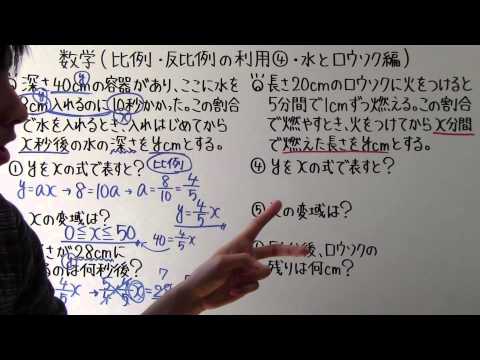 数学(比例・反比例の利用④・水とロウソク編)
深さ40cmの容器があり、ここに水を
8cm入れるのに10秒かかった。この割合
で水を入れるとき、入れはじめてから
x秒後の水の深さをycmとする。
①yをxの式で表すと?
比例
y=ax→8=10a→a=8/10=4/5
y=4/5x
xの変域は?
0≦x≦50
40=4/5x
さが28cmに
るのは何秒後?
長さ20cmのロウソクに火をつけると
5分間で1cmずつ燃える。この割合
で燃やすとき、火をつけてからx分間
で燃えた長さをycmとする。
④yをxの式で表すと?
⑤の変域は?
後、ロウソクの
残りは何cm?